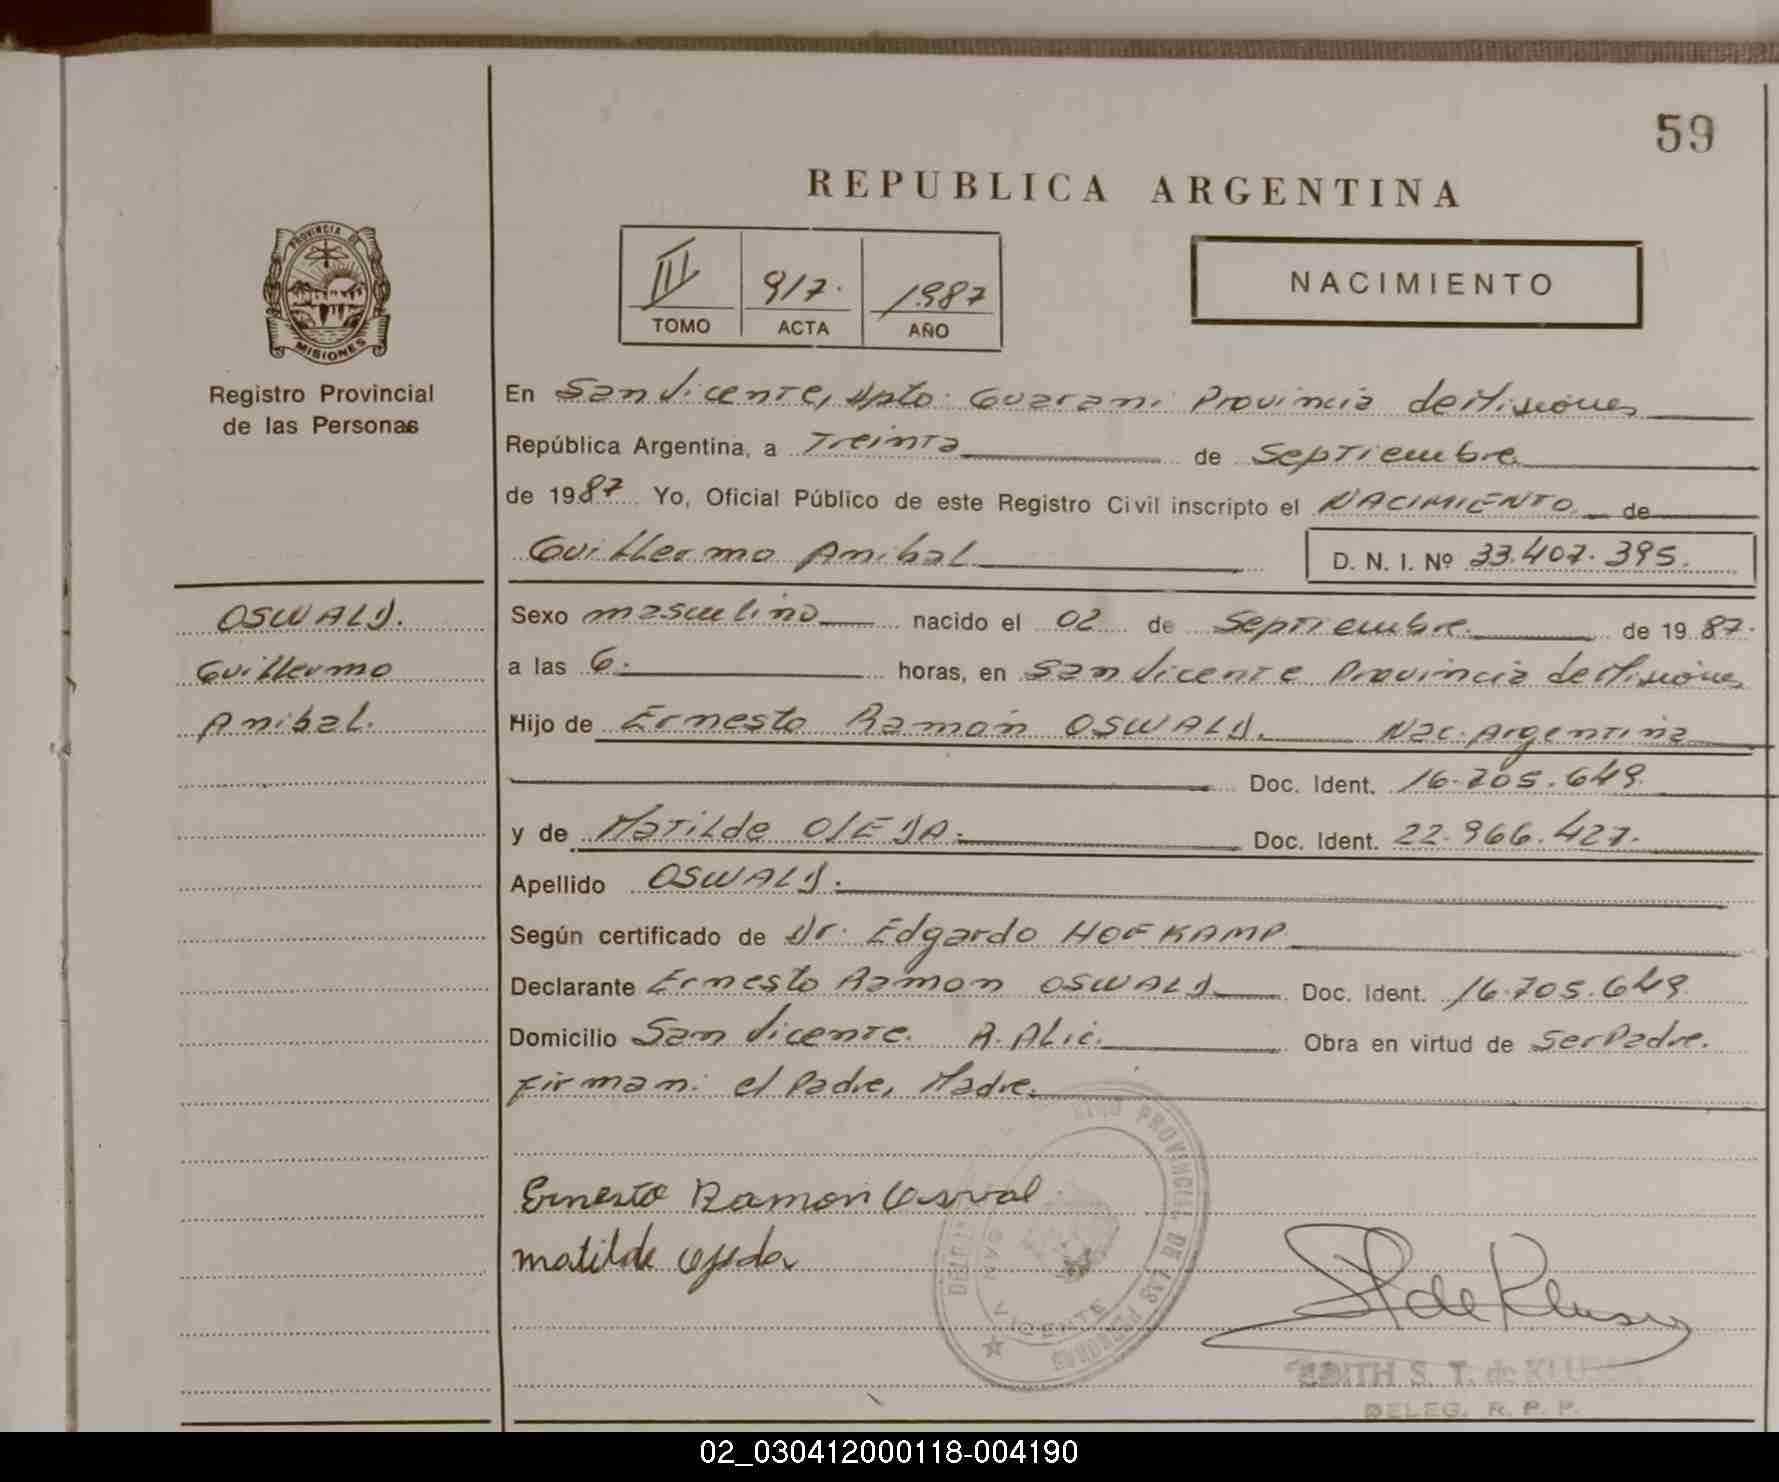 59
REPUBLICA ARGENTINA
PROVINCIA DE
MISIONES
Registro Provincial
de las Personas
III 917. 1987
TOMO ACTA AÑO
NACIMIENTO
En San Vicente, Dpto. Guarani Provincia de Misiones
República Argentina, a Treinta de Septiembre
de 1987 Yo, Oficial Público de este Registro Civil inscripto el NACIMIENTO de
Guillermo Anibal D. N. I. Nº 33.407.395.
OSWALD.
Guillermo
Anibal.
Sexo masculino nacido el 02 de Septiembre de 1987.
a las 6. horas, en San Vicente Provincia de Misiones
Hijo de Ernesto Ramón OSWALD. Nac. Argentina
Doc. Ident. 16.705.649.
y de Matilde OJEDA. Doc. Ident. 22.966.427.
Apellido OSWALD.
Según certificado de Dr. Edgardo HOFKAMP
Declarante Ernesto Ramon OSWALD Doc. Ident. 16.705.649
Domicilio San Vicente. A. Alic. Obra en virtud de ser Padre.
Firman: el Padre, Madre.
Ernesto Ramon Osval
matilde ojeda
PROVINCIAL DE LAS PERSONAS
SAN VICENTE
EDITH S. T. de
DELEG. R. P. P.
02_030412000118-004190